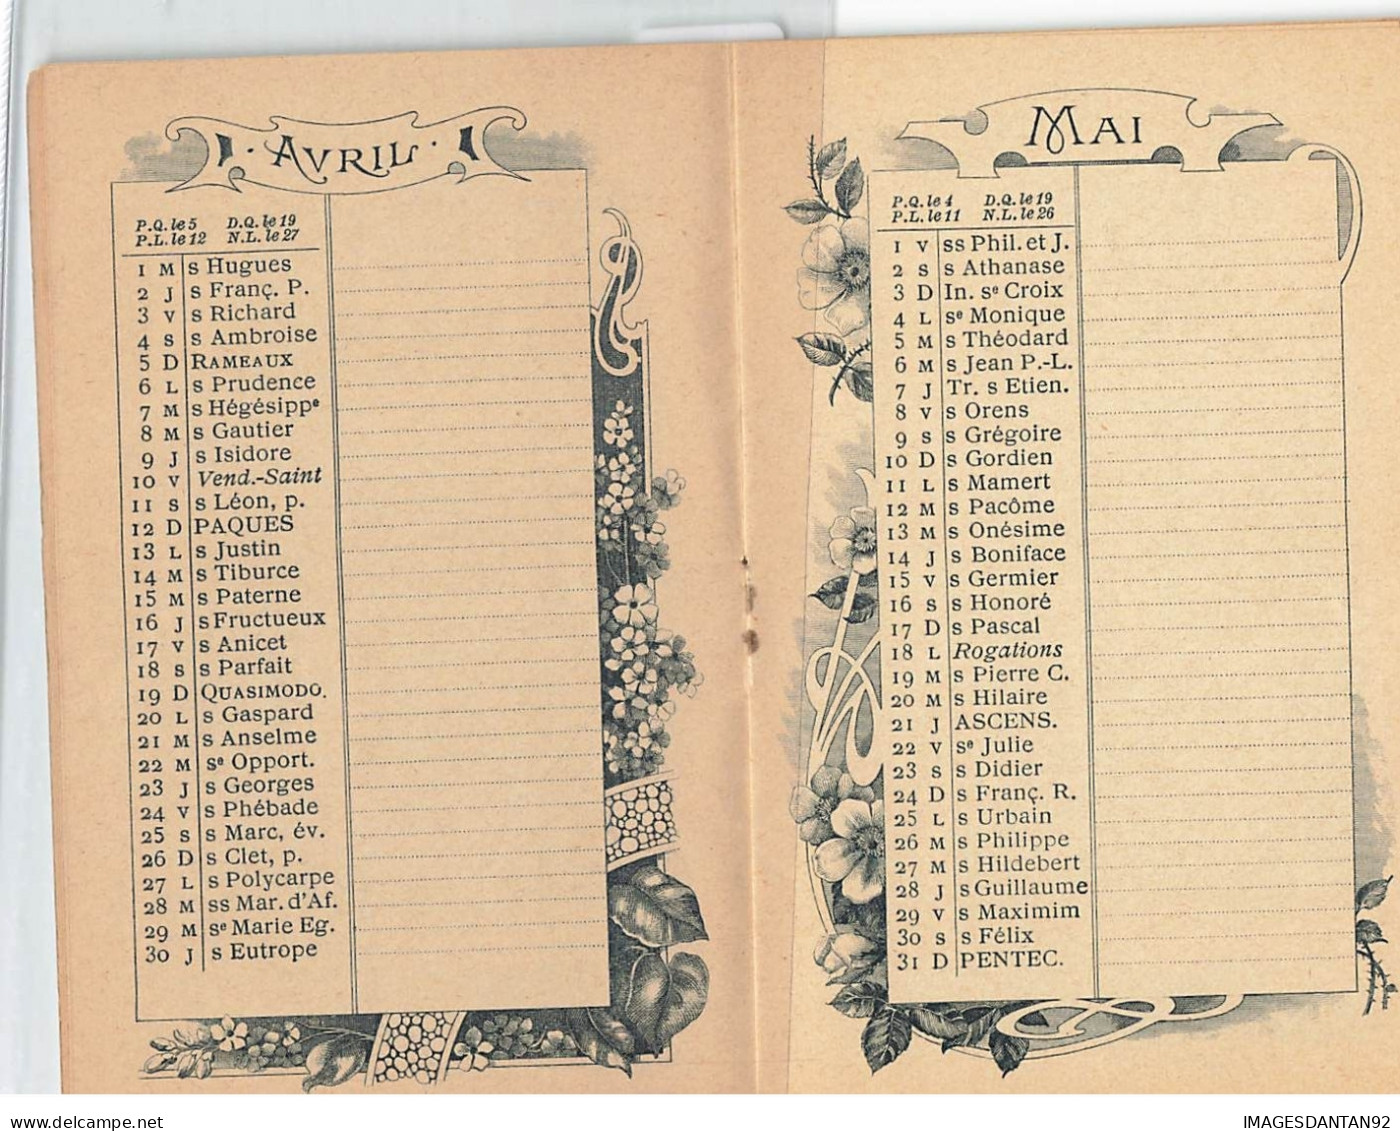 AVRIL
P.Q. le 5 D.Q. le 19
P.L. le 12 N.L. le 27
1 M s Hugues
2 J s Franç. P.
3 V s Richard
4 s s Ambroise
5 D RAMEAUX
6 L s Prudence
7 M s Hégésippe
8 M s Gautier
9 J s Isidore
10 V Vend.-Saint
11 s s Léon, p.
12 D PAQUES
13 L s Justin
14 M s Tiburce
15 M s Paterne
16 J s Fructueux
17 V s Anicet
18 s s Parfait
19 D QUASIMODO.
20 L s Gaspard
21 M s Anselme
22 M se Opport.
23 J s Georges
24 V s Phébade
25 s s Marc, év.
26 D s Clet, p.
27 L s Polycarpe
28 M ss Mar. d'Af.
29 M se Marie Eg.
30 J s Eutrope
MAI
P.Q. le 4 D.Q. le 19
P.L. le 11 N.L. le 26
1 V ss Phil. et J.
2 s s Athanase
3 D In. se Croix
4 L se Monique
5 M s Théodard
6 M s Jean P.-L.
7 J Tr. s Etien.
8 V s Orens
9 s s Grégoire
10 D s Gordien
11 L s Mamert
12 M s Pacôme
13 M s Onésime
14 J s Boniface
15 V s Germier
16 s s Honoré
17 D s Pascal
18 L Rogations
19 M s Pierre C.
20 M s Hilaire
21 J ASCENS.
22 V se Julie
23 s s Didier
24 D s Franç. R.
25 L s Urbain
26 M s Philippe
27 M s Hildebert
28 J s Guillaume
29 V s Maximim
30 s s Félix
31 D PENTEC.
www.delcampe.net
IMAGESDANTAN92